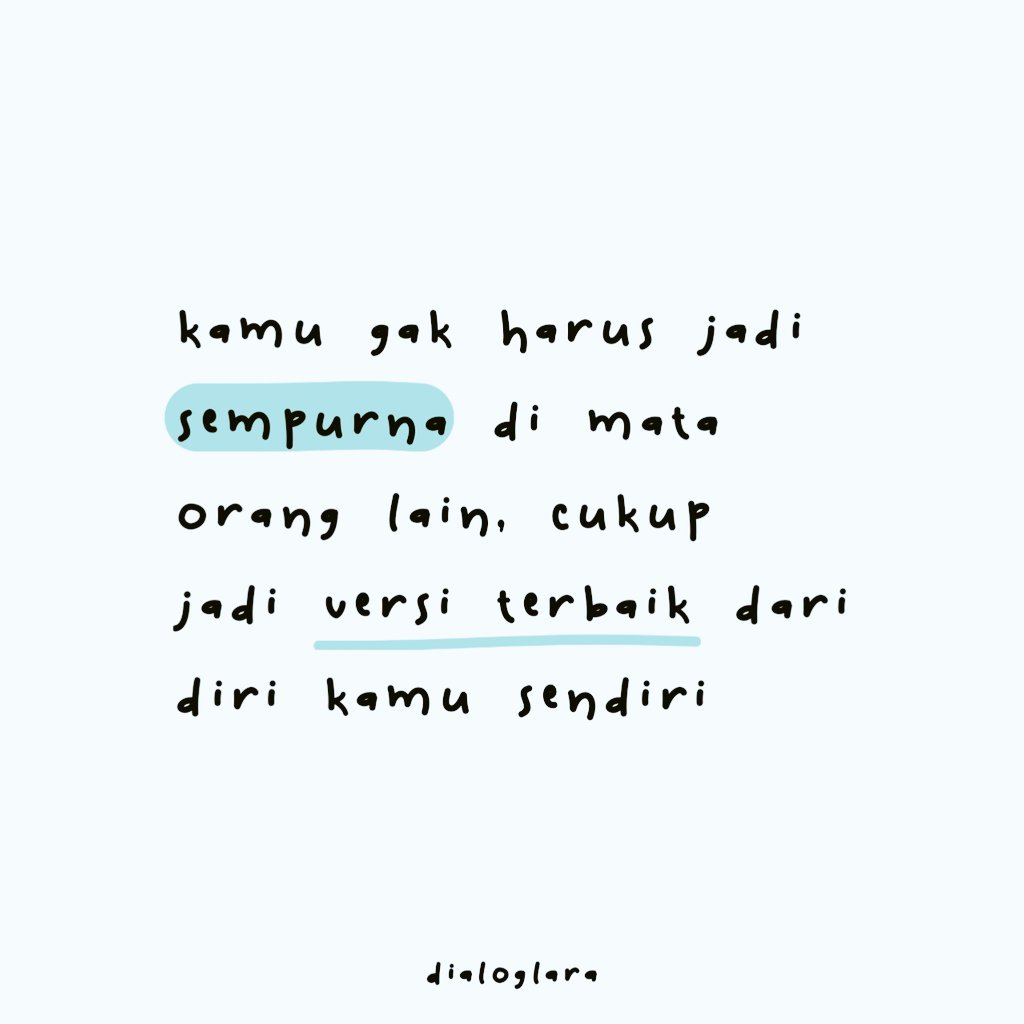 kamu gak harus jadi
sempurna di mata
orang lain, cukup
jadi versi terbaik dari
diri kamu sendiri
dialoglara